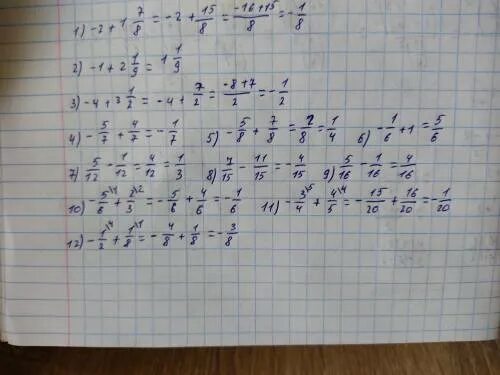 1) -2+1 7/8 = -2 + 15/8 = (-16+15)/8 = -1/8
2) -1+2 1/9 = 1 1/9
3) -4+3 1/2 = -4 + 7/2 = (-8+7)/2 = -1/2
4) -5/7 + 4/7 = -1/7 5) -5/8 + 7/8 = 2/8 = 1/4 6) -1/6 + 1 = 5/6
7) 5/12 - 1/12 = 4/12 = 1/3 8) 7/15 - 11/15 = -4/15 9) 5/16 - 1/16 = 4/16
10) -5\1/6 + 2\2/3 = -5/6 + 4/6 = -1/6 11) -3\5/4 + 4\4/5 = -15/20 + 16/20 = -1/20
12) -1\4/2 + 1\1/8 = -4/8 + 1/8 = -3/8